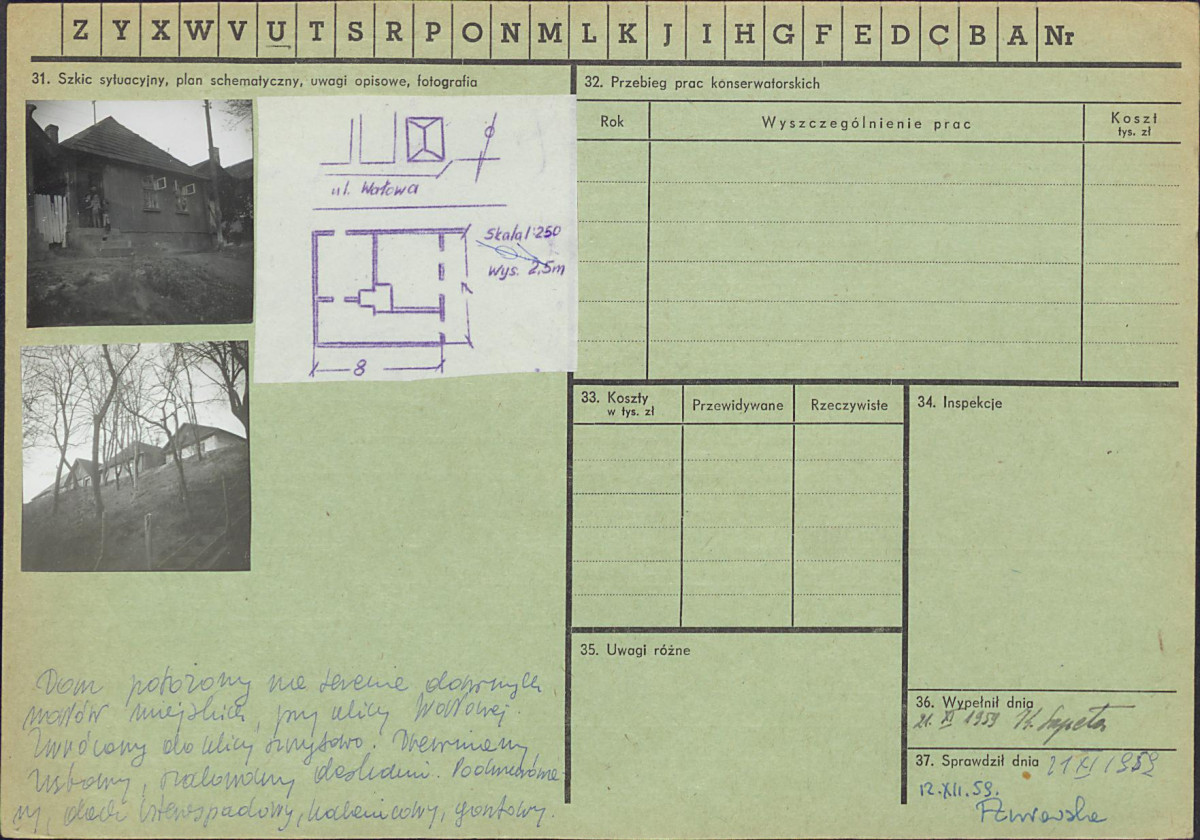 Z Y X W V U T S R P O N M L K J I H G F E D C B A Nr
31. Szkic sytuacyjny, plan schematyczny, uwagi opisowe, fotografia
ul. Wałowa
Skala 1:250
Wys. 2,5m
7
8
Dom położony na terenie dawnych
wałów miejskich, przy ulicy Wałowej.
Zwrócony do ulicy szczytowo. Drewniany,
zrębowy, szalowany deskami. Podmurowa-
ny, dach czterospadowy, kalenicowy, gontowy.
32. Przebieg prac konserwatorskich
Rok Wyszczególnienie prac Koszt
tys. zł
33. Koszty
w tys. zł
Przewidywane Rzeczywiste
34. Inspekcje
35. Uwagi różne
36. Wypełnił dnia
21. XI 1959
37. Sprawdził dnia 21 XI 1959
12.XII.59.